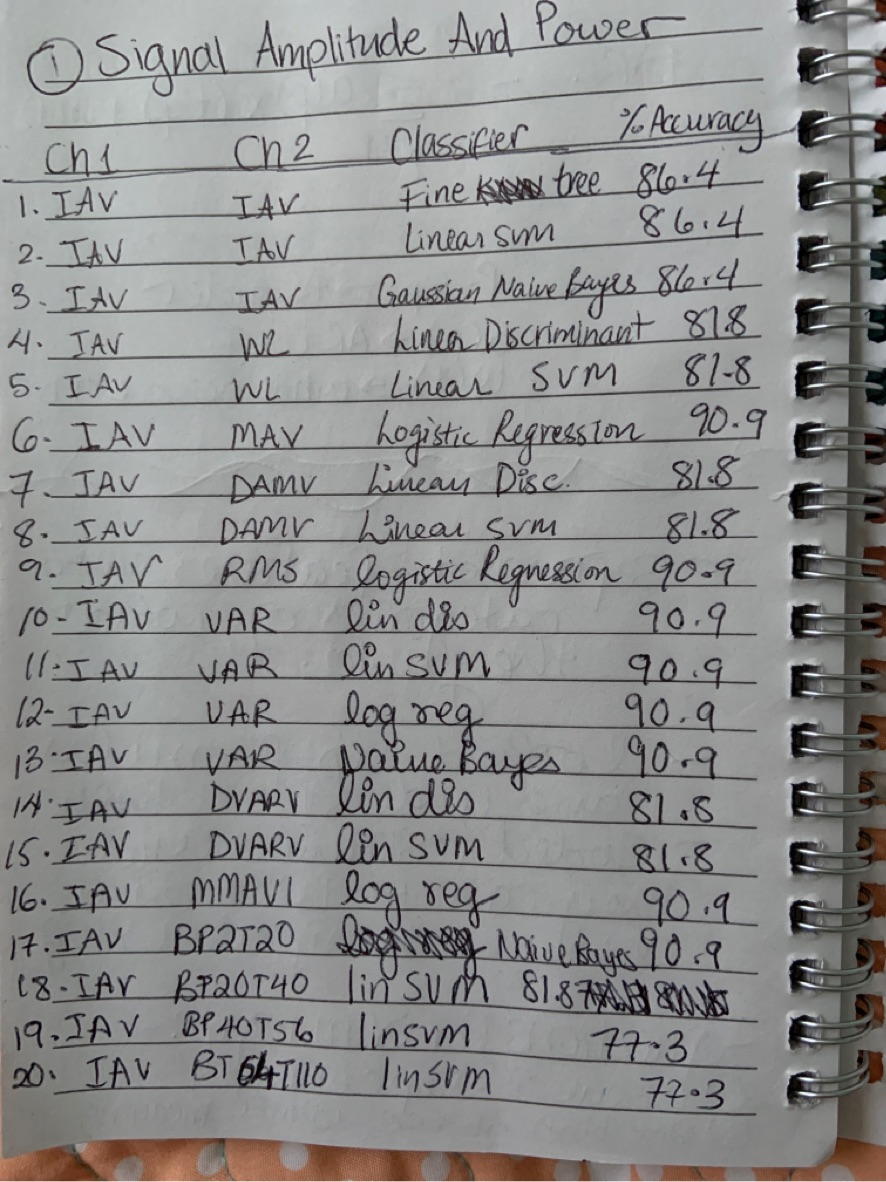 ① Signal Amplitude And Power
Ch1 Ch2 Classifier % Accuracy
1. IAV IAV Fine tree 86.4
2. IAV IAV Linear SVM 86.4
3. IAV IAV Gaussian Naive Bayes 86.4
4. IAV WL Linear Discriminant 81.8
5. IAV WL Linear SVM 81.8
6. IAV MAV Logistic Regression 90.9
7. IAV DAMV Linear Disc. 81.8
8. IAV DAMV Linear SVM 81.8
9. IAV RMS logistic Regression 90.9
10- IAV VAR lin dis 90.9
11. IAV VAR lin SVM 90.9
12- IAV VAR log reg 90.9
13. IAV VAR Naive Bayes 90.9
14. IAV DVARV lin dis 81.8
15. IAV DVARV lin SVM 81.8
16. IAV MMAV1 log reg 90.9
17. IAV BP2T20 Naive Bayes 90.9
18- IAV BP20T40 lin SVM 81.8
19. IAV BP40T56 linsvm 77.3
20. IAV BT64T110 linsvm 77.3